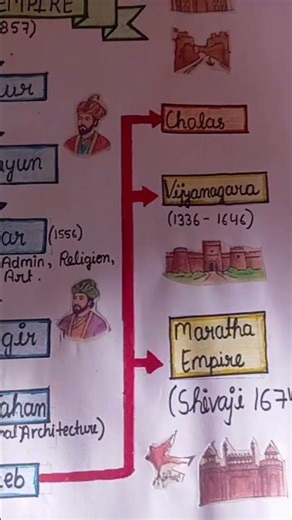 EMPIRE
1857)
ur
ayun
ar (1556)
Admin, Religion,
Art.
gir
ahan
nal Architecture)
eb
Cholas
Vijyanagara
(1336 - 1646)
Maratha
Empire
(Shivaji 1674